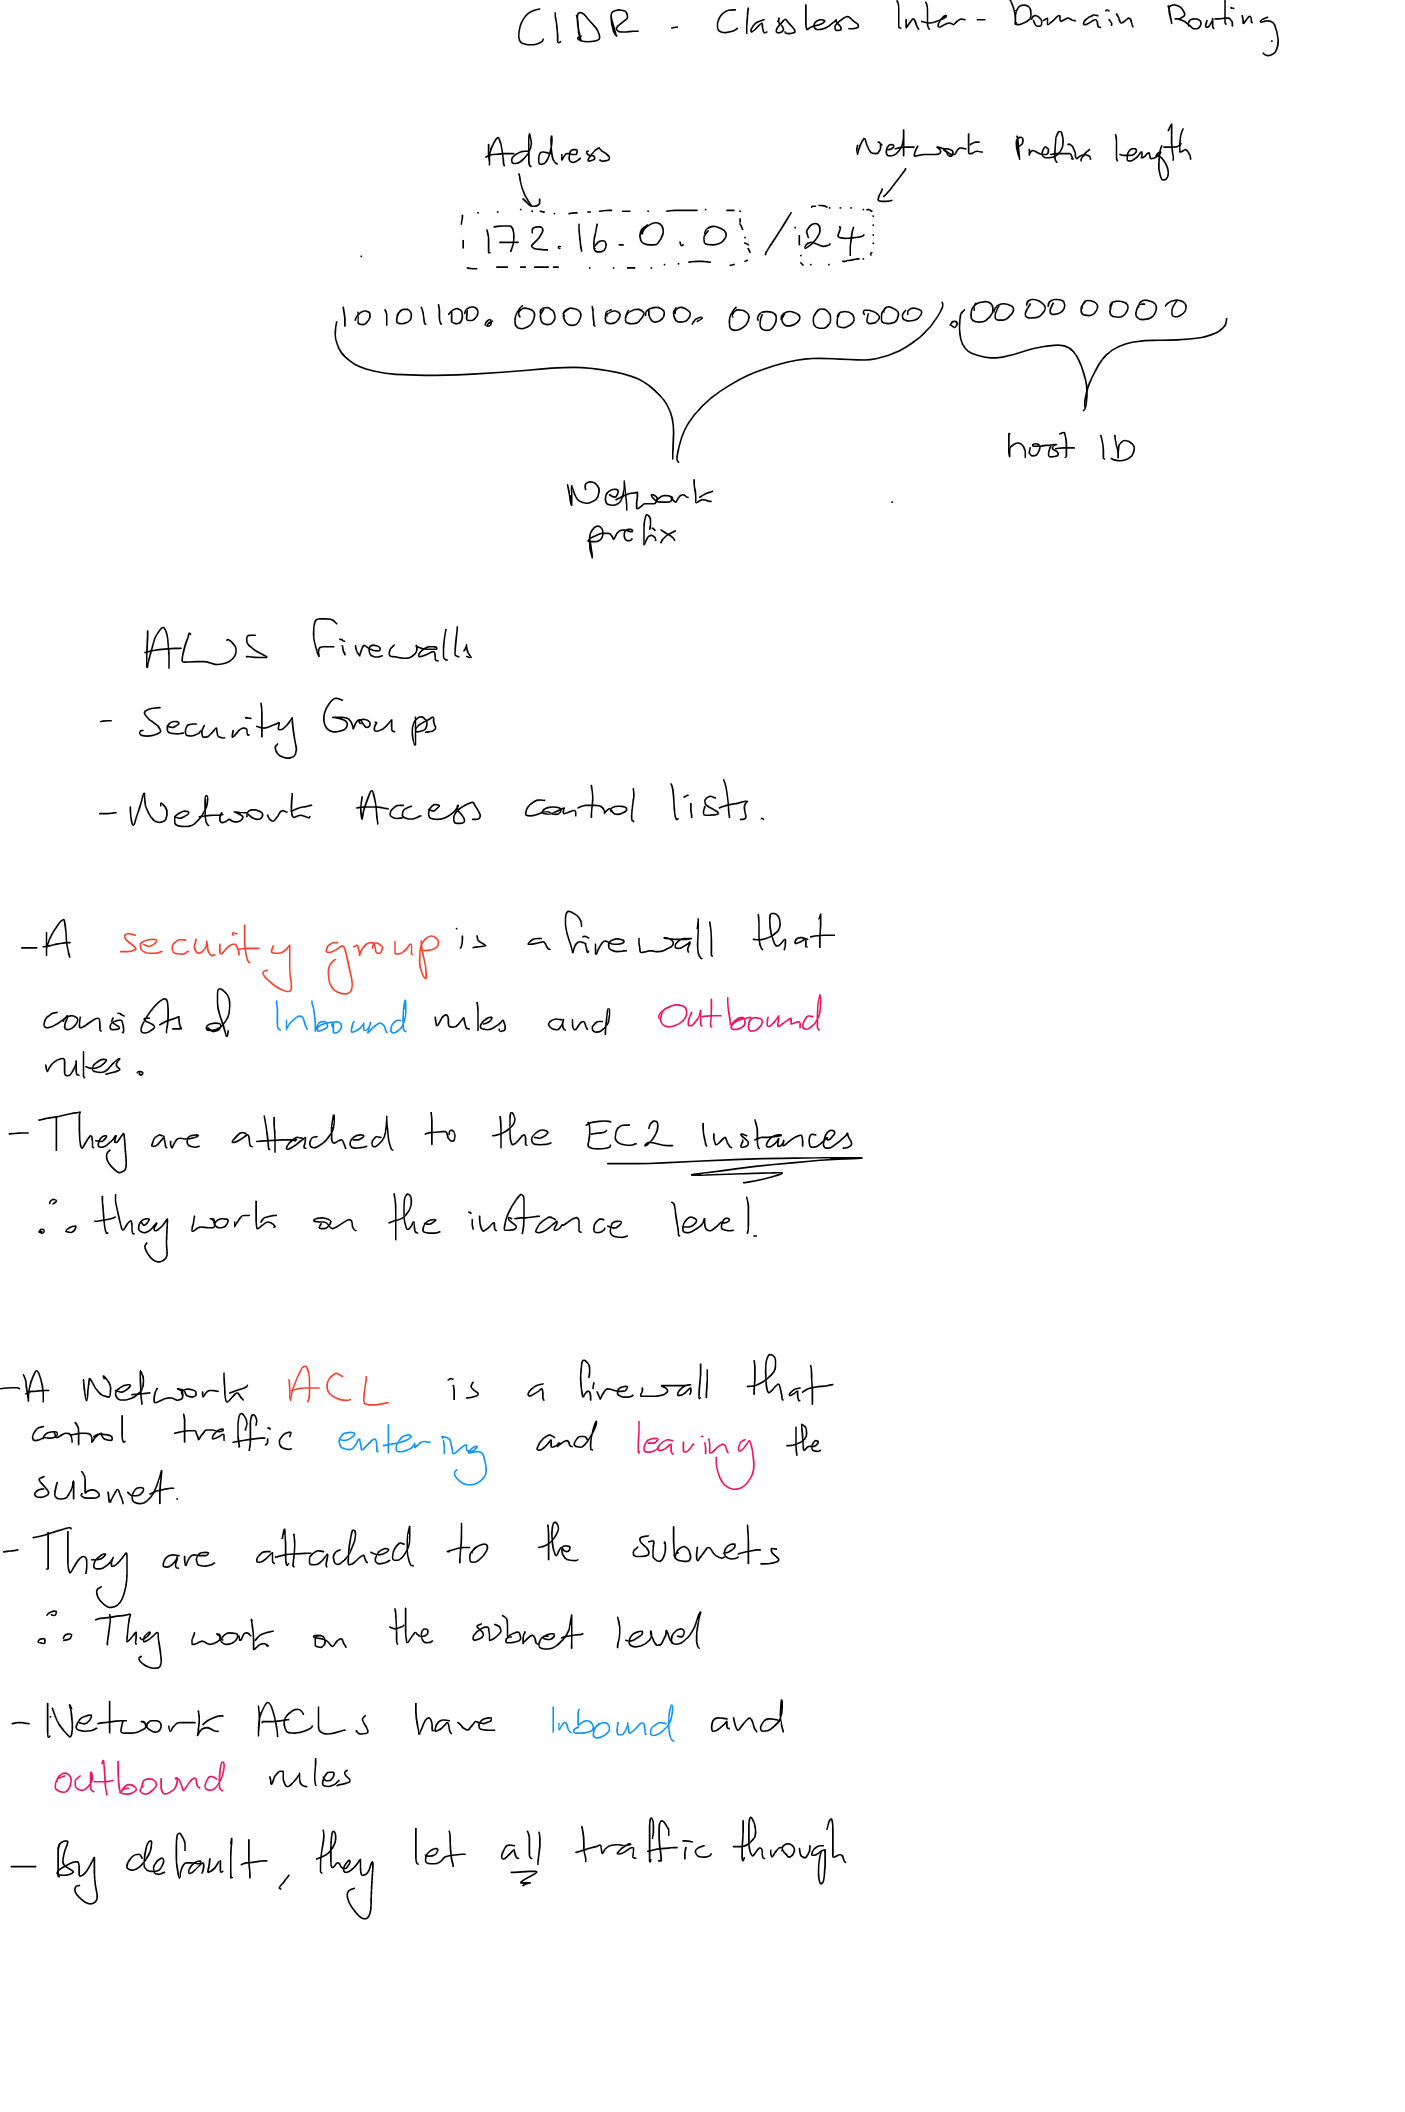 CIDR - Classless Inter-Domain Routing
Address
Network Prefix Length
172.16.0.0/24
10101100.00010000.00000000.00000000
host ID
Network
prefix
AWS Firewalls
- Security Groups
- Network Access control lists.
- A security group is a firewall that
consists of Inbound rules and Outbound
rules.
- They are attached to the EC2 Instances
∴ they work on the instance level.
- A Network ACL is a firewall that
control traffic entering and leaving the
subnet.
- They are attached to the subnets
∴ They work on the subnet level
- Network ACLs have Inbound and
outbound rules
- By default, they let all traffic through